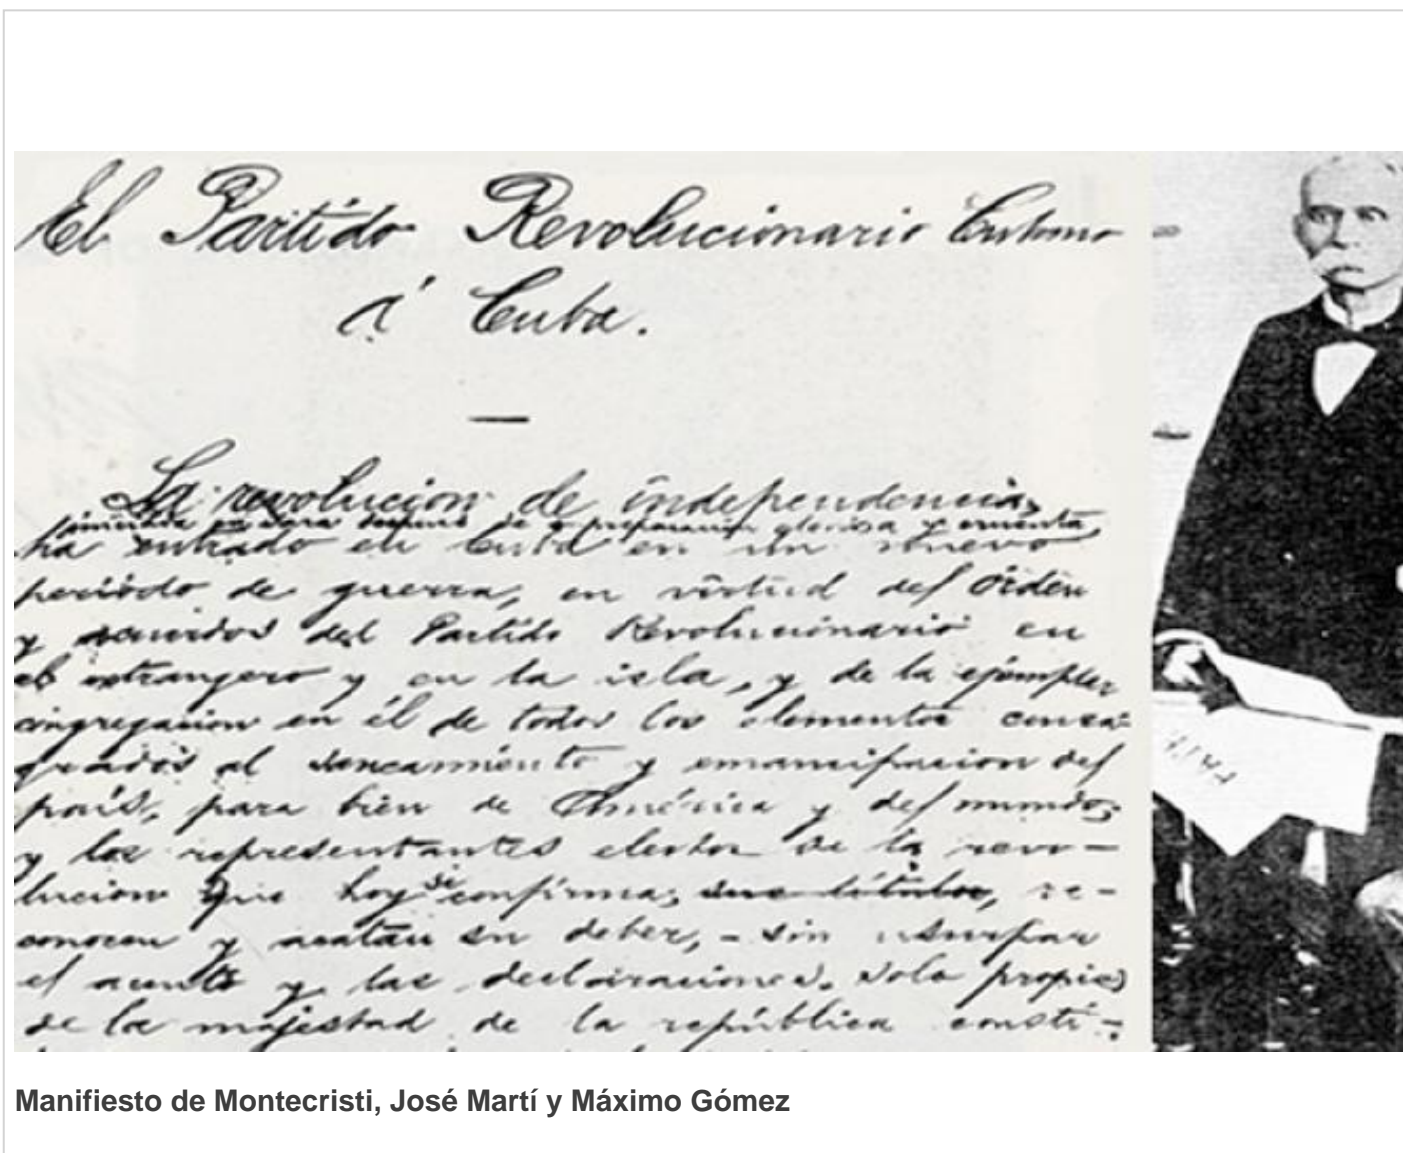 El Partido Revolucionario Cubano
á Cuba.
La revolucion de independencia,
iniciada en Yara despues de preparacion gloriosa y cruenta,
ha entrado en Cuba en un nuevo
período de guerra, en virtud del órden
y acuerdos del Partido Revolucionario en
el extrangero y en la isla, y de la ejemplar
congregacion en él de todos los elementos consa-
grados al saneamiento y emancipacion del
país, para bien de América y del mundo;
y los representantes electos de la revo-
lucion que hoy se confirma, sus títulos, re-
conocen y acatan su deber, - sin usurpar
el acento y las declaraciones solo propias
de la majestad de la república consti-
PATR
Manifiesto de Montecristi, José Martí y Máximo Gómez